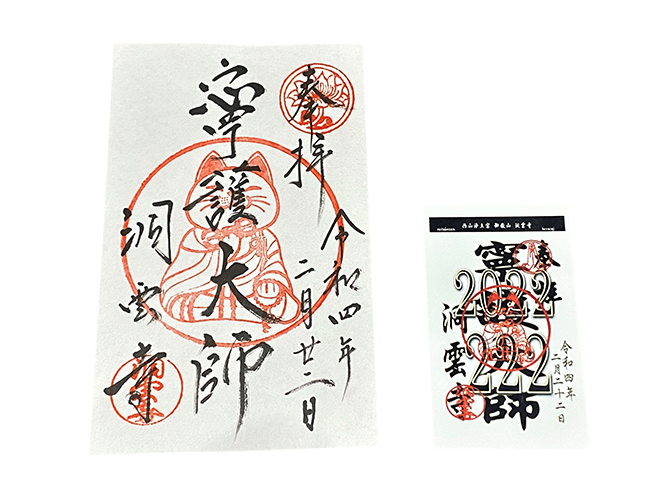 奉拝
令和四年
二月廿二日
寧護大師
洞雲寺
西山浄土宗 御嶽山 洞雲寺
奉拝
令和四年
二月二十二日
寧護 師
2022
222
洞雲寺